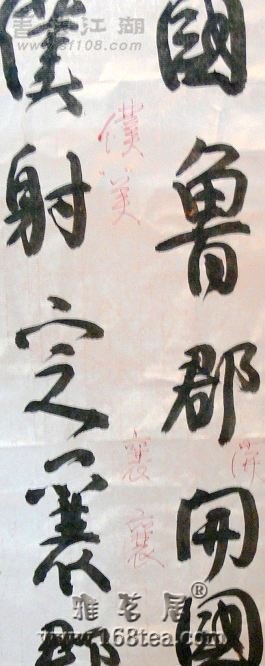 國魯郡開國
僕射定襄郡
僕
襄
襄
開
書法江湖
www.sf108.com
雅茗居®
www.168tea.com